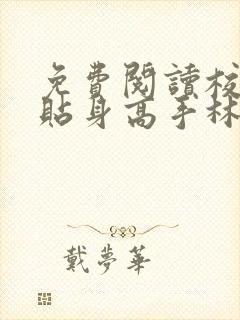 免費閱讀校
貼身高手林
戴夢華